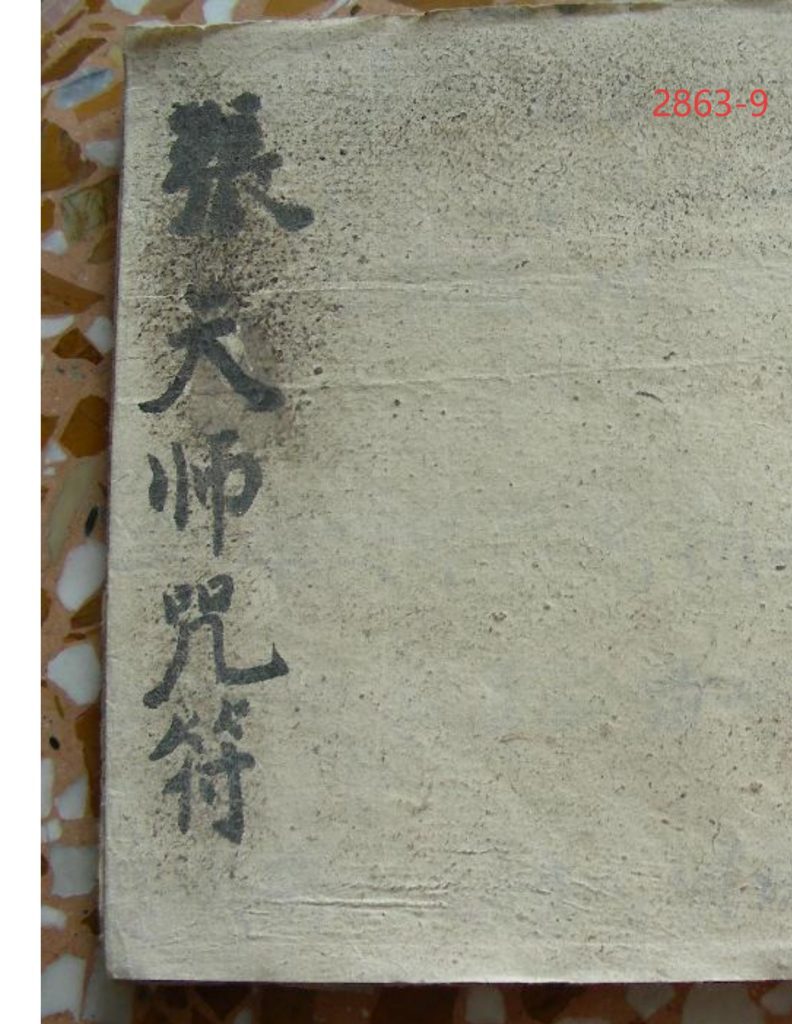 張天师咒符
2863-9